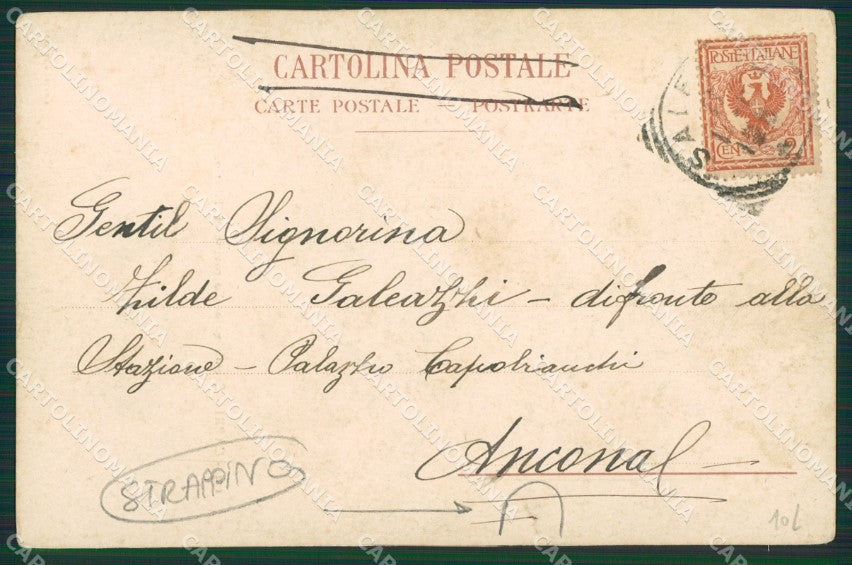 CARTOLINA POSTALE
CARTE POSTALE — POSTKARTE
POSTE ITALIANE
CENT. 2
SALE
Gentil Signorina
Zilde Galeazzi – difronte alla
Stazione – Palazzo Capobianchi
Ancona
STRAPPINO
10L
CARTOLINOMANIA